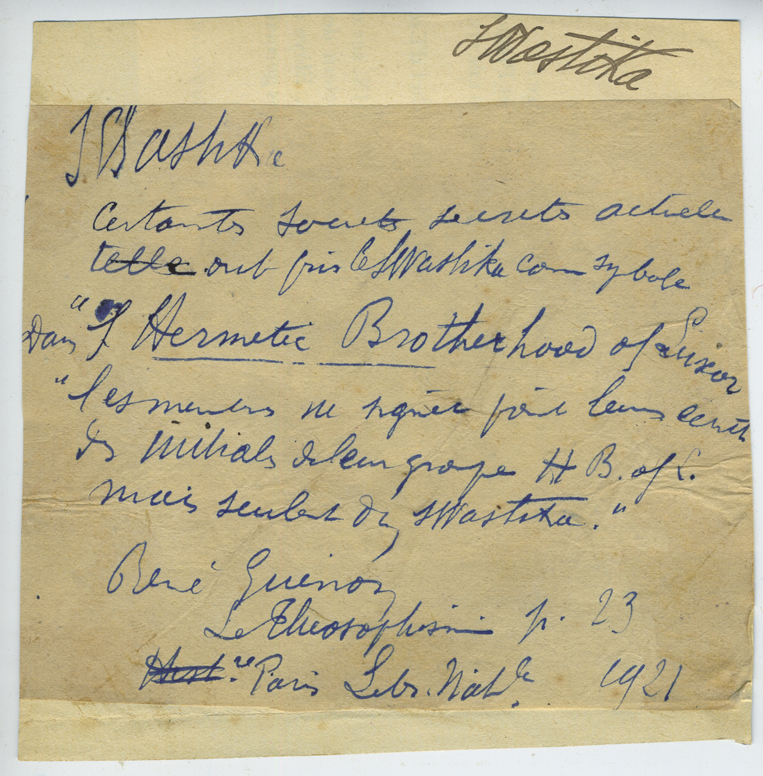 Swastika
Swastika
Certaines societs secretes actuelles
telle ont pris le Swastika com sybole
Dans "l' Hermetic Brotherhood of Luxor
"les membres ne signée point leurs ecrits
des initials de leur groupe H B. of L.
mais seulent du swastika."
René Guénon
Le Theosophisme p. 23
Hist. re Paris Libr. Natle 1921